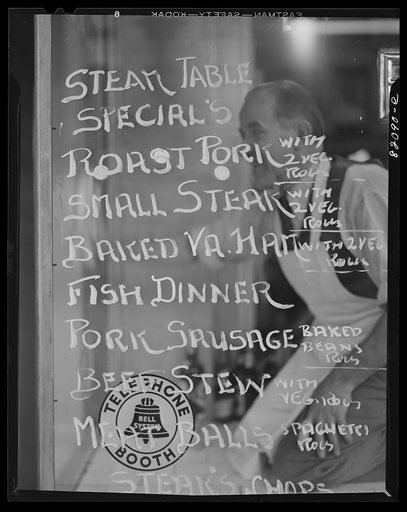 8 EASTMAN—SAFETY—KODAK
82090-E
STEAK TABLE
SPECIAL'S
ROAST PORK WITH 2 VEG. ROLLS
SMALL STEAK WITH 2 VEG. ROLLS
BAKED VA. HAM WITH 2 VEG ROLLS
FISH DINNER
PORK SAUSAGE BAKED BEANS ROLLS
BEEF STEW WITH VEG. ROLLS
MEAT BALLS SPAGHETTI ROLLS
TELEPHONE
BELL
SYSTEM
BOOTH
STEAK'S CHOPS